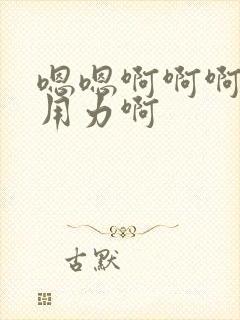 嗯嗯啊啊啊
用力啊
古默